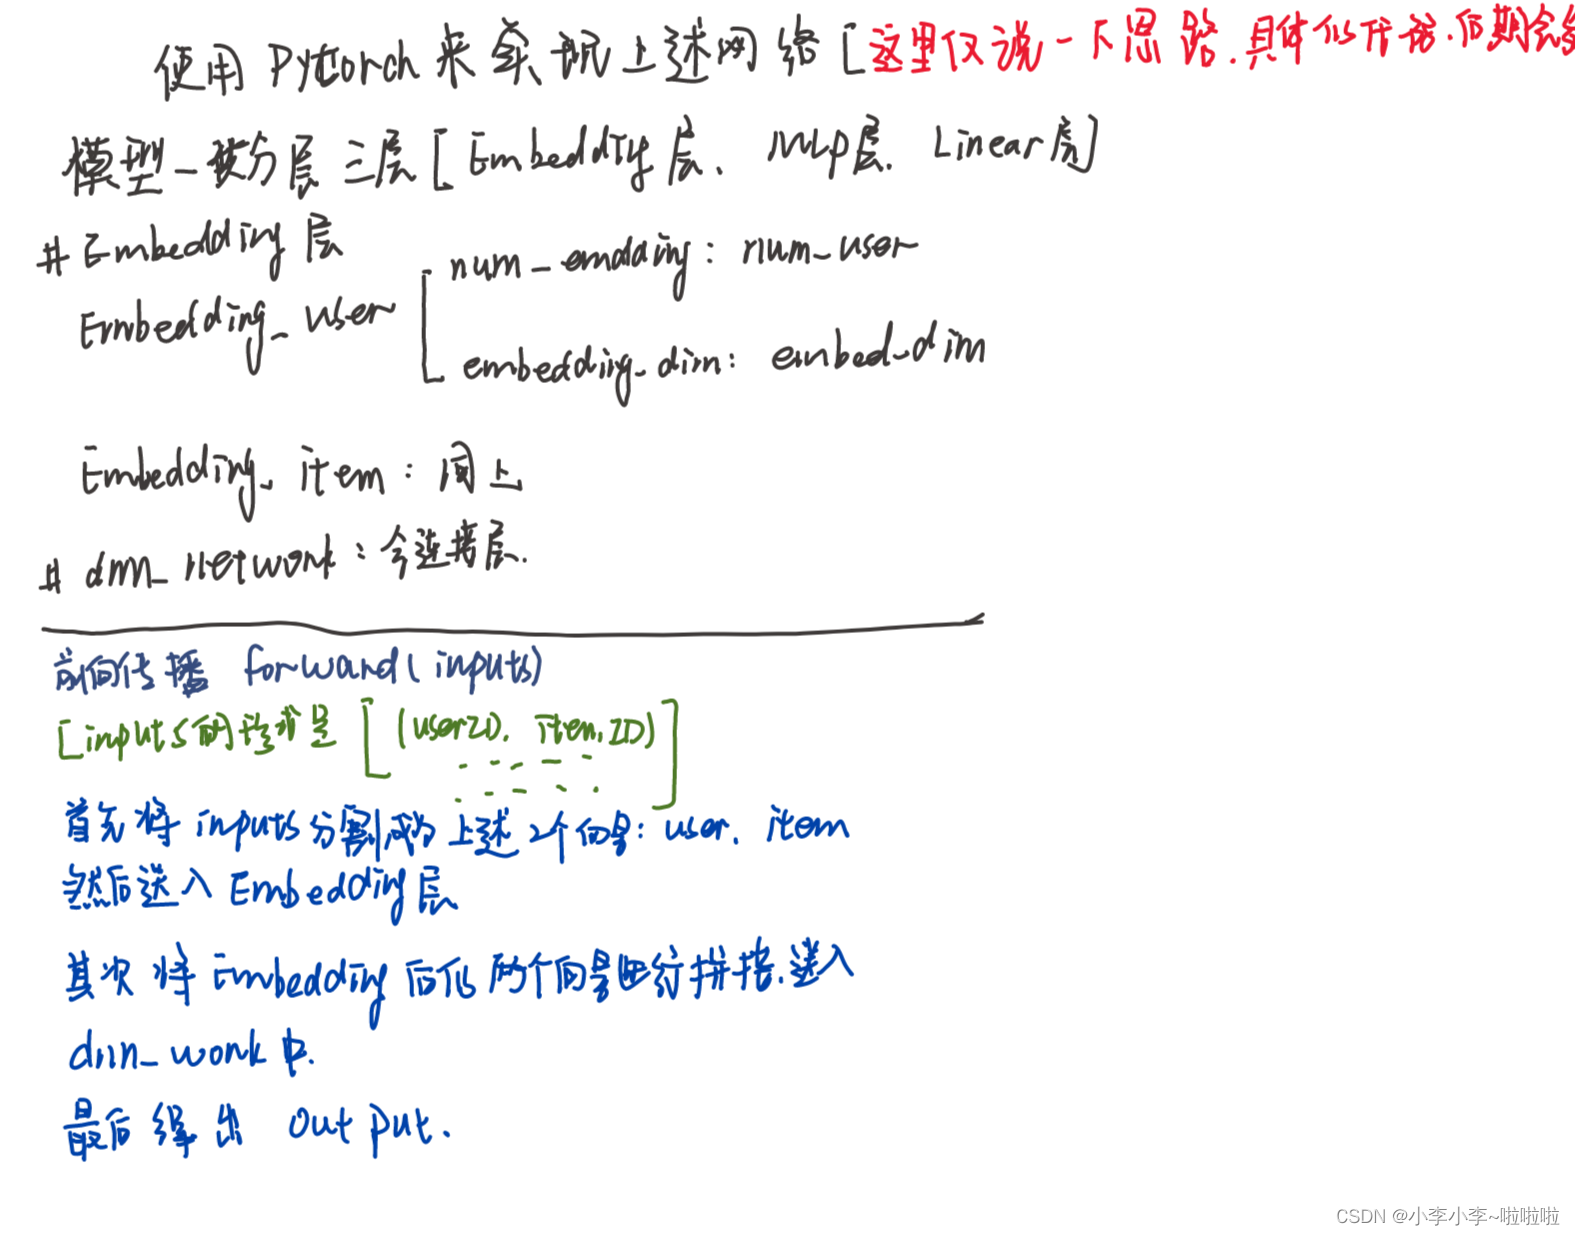 使用 Pytorch 来实现上述网络 [这里仅说一下思路.具体的代码.后期会
模型一般分层三层 [Embedding层、MLP层、Linear层]
# Embedding 层
Embedding_user [ num_emdding: num_user
embedding_dim: embed_dim
Embedding_item: 同上
# dnn_network: 全连接层.
前向传播 forward(inputs)
[inputs的形式是 [(userID, itemID)]
首先将 inputs 分割成为上述2个向量: user, item
然后送入 Embedding 层
其次将 Embedding 后的两个向量进行拼接.送入
dnn_work 中.
最后得出 output.
CSDN @小李小李~啦啦啦